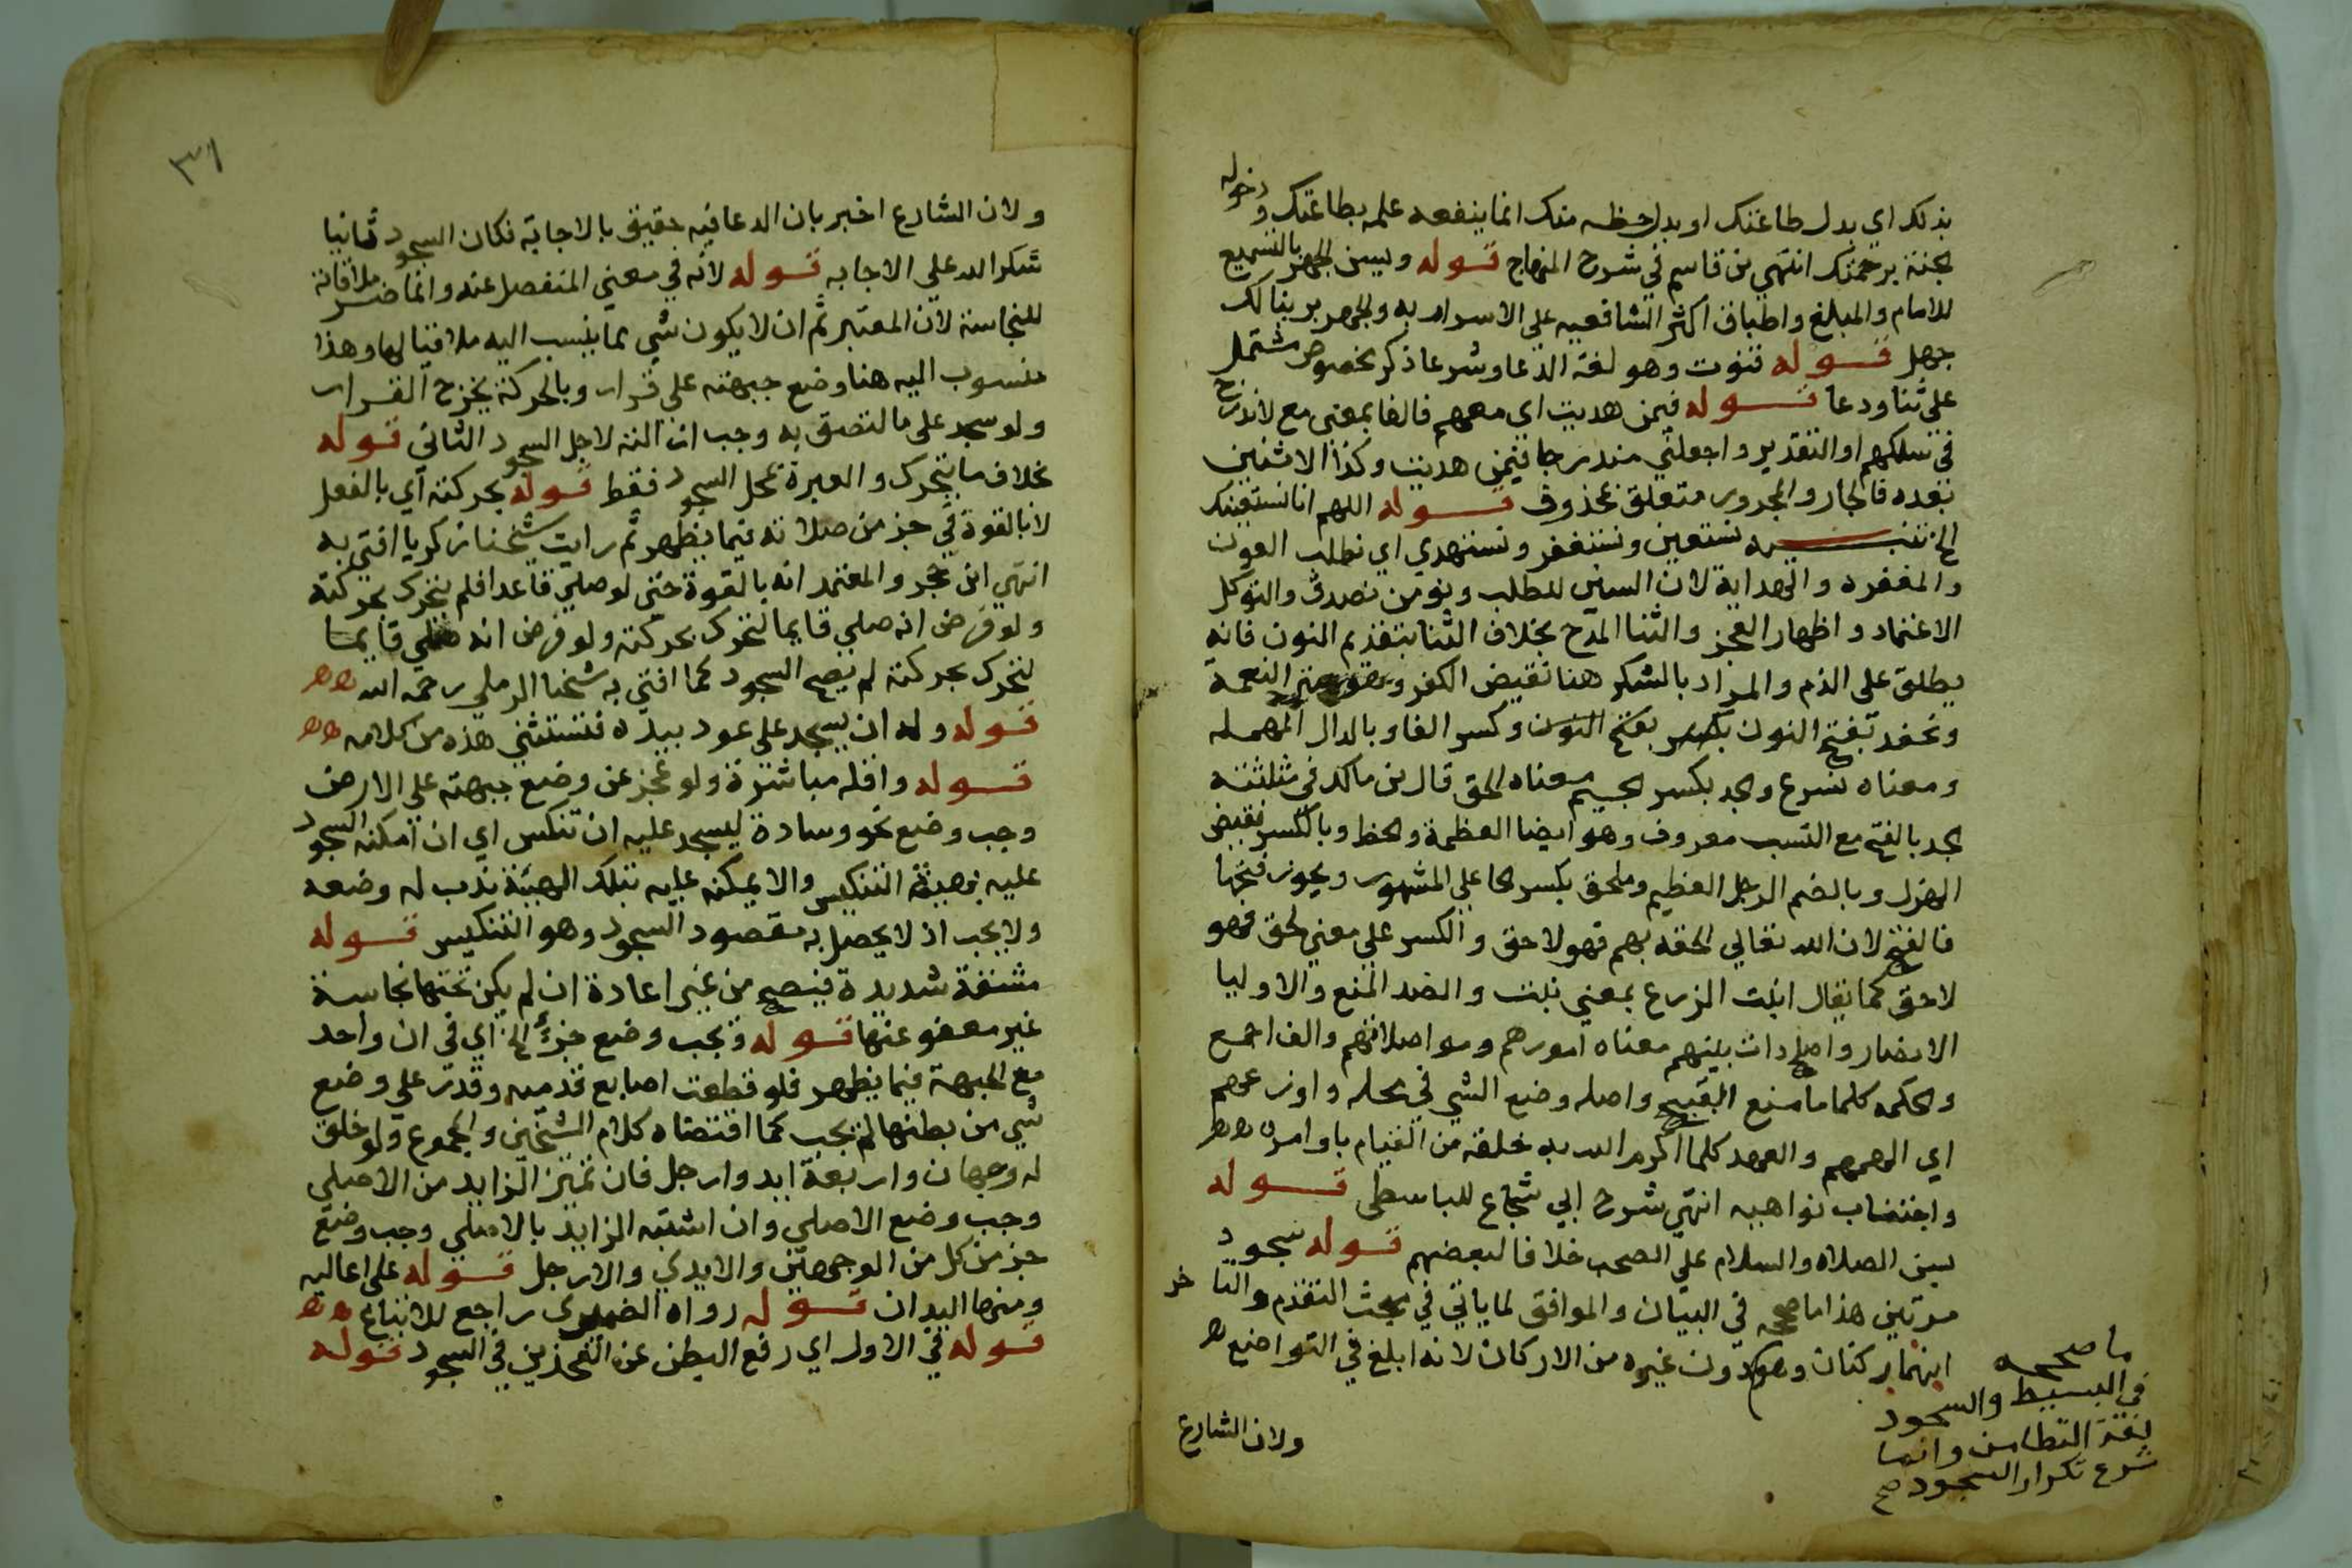 بذلك اي بدل طاعتك او بدل حظه منك انما ينفعه علمه بطاعتك ودخوله
الجنة برحمتك انتهي بن قاسم في شرح المنهاج قوله ويسن الجهر بالتسميع
للامام والمبلغ واطباق اكثر الشافعيه علي الاسرار به والجهر بربنا لك
جهل قوله قنوت وهو لغة الدعا وشرعا ذكر مخصوص مشتمل
على ثنا ودعا قوله فيمن هديت اي معهم فالفا بمعنى مع لاندرج
في سلكهم او التقدير واجعلني مندرجا فيمن هديت وكذا الاثنين
بعده فالجار والمجرور متعلق بمحذوف قوله اللهم انا نستعينك
الخ تنبيه نستعين ونستغفر ونستهدي اي نطلب العون
والمغفرة والهداية لان السين للطلب ونومن نصدق والتوكل
الاعتماد واظهار العجز والثنا المدح بخلاف الثنا بتقديم النون فانه
يطلق على الذم والمراد بالشكر هنا نقيض الكفر وهو ستر النعمة
ونحفد بفتح النون بكسر بفتح النون وكسر الفا وبالدال المهملة
ومعناه نسرع والجد بكسر الجيم معناه الحق قال بن مالك في مثلثته
الجد بالفتح مع النسب معروف وهو ايضا العظمة والحظ وبالكسر نقيض
الهزل وبالضم الرجل العظيم وملحق بكسر الحا على المشهور ويجوز فتحها
فالفتح لان الله تعالي الحقه بهم فهو لاحق والكسر علي معني لحق فهو
لاحق كما يقال انبت الزرع بمعني نبت والضد المنع والاوليا
الانصار واصلح ذات بينهم معناه امورهم ومواصلاتهم والف اجمع
والحكمه كلما ما منع القبيح واصله وضع الشي في محله واوزعهم
اي الهمهم والعهد كلما اكرم الله به خلقه من القيام باوامره
واجتناب نواهيه انتهي شرح ابي شجاع للباسطي قوله
يسن الصلاه والسلام علي الصحب خلافا لبعضهم قوله سجود
مرتين هذا ما صححه في البيان والموافق لما ياتي في مبحث التقدم والتاخر
انهما ركنان وهو دون غيره من الاركان لانه ابلغ في التواضع
ما صححه
في البسيط والسجود
لغة التطامن وانما
شرع تكرار السجود صح
ولان الشارع
٣١
ولان الشارع اخبر بان الدعا فيه حقيق بالاجابة فكان السجود ثانيا
شكرا لله علي الاجابه قوله لانه في معني المنفصل عنه وانما ضر ملاقاته
للنجاسة لان المعتبر ثم ان لا يكون شي مما ينسب اليه ملاقيا لها وهذا
منسوب اليه هنا وضع جبهته على قرار وبالحركة يخرج القرار
ولو سجد على ما لتصق به وجب ازالته لاجل السجود الثاني قوله
بخلاف ما يتحرك والعبرة بمحل السجود فقط قوله بحركته اي بالفعل
لا بالقوة في جز من صلاته فيما يظهر ثم رايت شيخنا زكريا افتي به
انتهي ابن حجر والمعتمد انه بالقوة حتى لو صلي قاعدا فلم يتحرك بحركته
ولو فرض انه صلي قايما لتحرك بحركته ولو فرض انه صلي قايما
لتحرك بحركته لم يصح السجود كما افتي به شيخنا الرملي رحمه الله
قوله وله ان يسجد على عود بيده فتستثني هذه من كلامه
قوله واقله مباشرة ولو عجز عن وضع جبهته علي الارض
وجب وضع نحو وسادة ليسجد عليه ان تنكس اي ان امكنه السجود
عليه بهيئة التنكيس والا يمكنه عليه بتلك الهيئة ندب له وضعه
ولا يجب اذ لا يحصل به مقصود السجود وهو التنكيس قوله
مشقة شديدة فيصح من غير اعادة ان لم يكن تحتها نجاسة
غير معفو عنها قوله ويجب وضع جزء الخ اي في ان واحد
مع الجبهة فيما يظهر فلو قطعت اصابع قدميه وقدر علي وضع
شي من بطنها لم يجب كما اقتضاه كلام الشيخين والمجموع ولو خلق
له وجهان واربعة ايد وارجل فان تميز الزايد من الاصلي
وجب وضع الاصلي وان اشتبه الزايد بالاصلي وجب وضع
جز من كل من الوجهين والايدي والارجل قوله على اعاليه
ومنها اليدان قوله رواه الضمير راجع للاتباع
قوله في الاولي اي رفع البطن عن الفخذين في السجود قوله